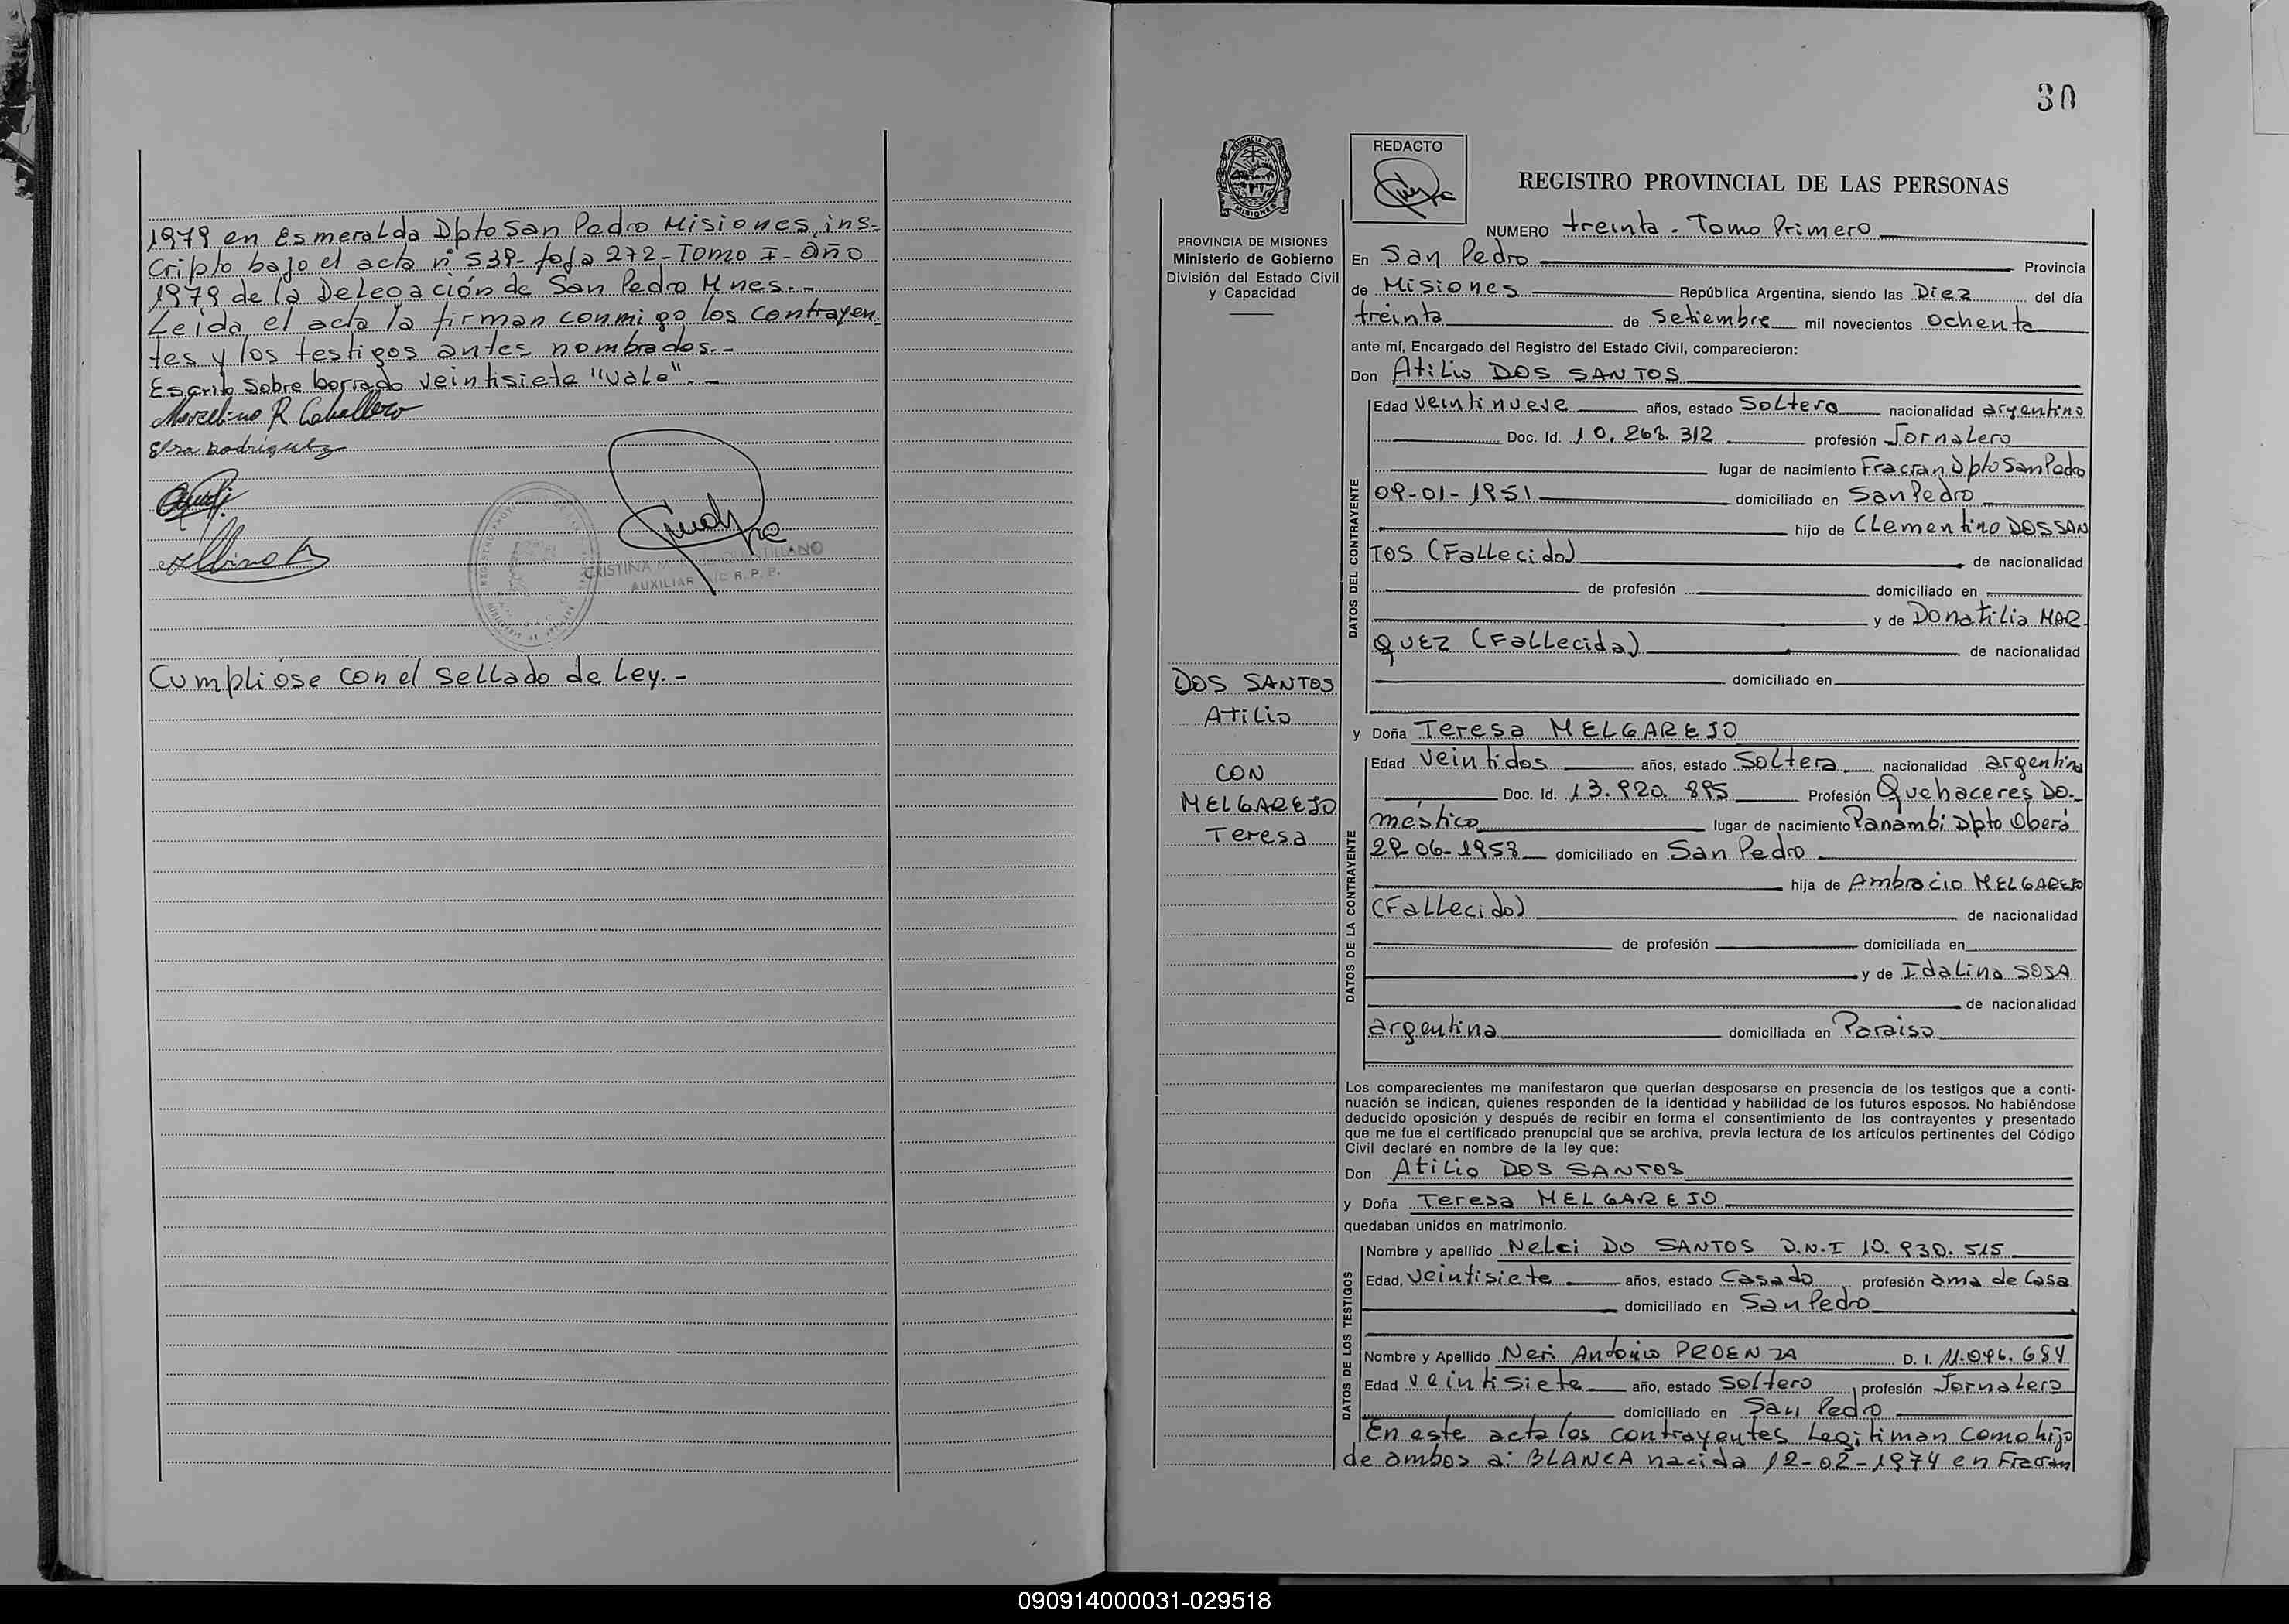 1979 en Esmeralda Dpto San Pedro Misiones, ins-
cripto bajo el acta nº 539- foja 272- Tomo I- Año
1979 de la Delegación de San Pedro Mnes.-
Leída el acta la firman conmigo los contrayen-
tes y los testigos antes nombrados.-
Escrito sobre borrado veintisiete "Vale".-
Marcelino R. Caballero
Elsa Rodriguez
CRISTINA
AUXILIAR A/C R. P. P.
Cumplióse con el sellado de Ley.-
30
REDACTO
REGISTRO PROVINCIAL DE LAS PERSONAS
PROVINCIA DE MISIONES
Ministerio de Gobierno
División del Estado Civil
y Capacidad
NUMERO treinta - Tomo Primero
En San Pedro Provincia
de Misiones República Argentina, siendo las Diez del día
treinta de Setiembre mil novecientos ochenta
ante mí, Encargado del Registro del Estado Civil, comparecieron:
Don Atilio DOS SANTOS
DATOS DEL CONTRAYENTE
Edad veintinueve años, estado Soltero nacionalidad argentino
Doc. Id. 10.268.312 profesión Jornalero
lugar de nacimiento Fracran Dpto San Pedro
09-01-1951 domiciliado en San Pedro
hijo de Clementino DOS SAN
TOS (Fallecido) de nacionalidad
de profesión domiciliado en
y de Donatilia MAR
QUEZ (Fallecida) de nacionalidad
domiciliado en
DOS SANTOS
Atilio
CON
MELGAREJO
Teresa
y Doña Teresa MELGAREJO
DATOS DE LA CONTRAYENTE
Edad veintidos años, estado Soltera nacionalidad argentina
Doc. Id. 13.920.895 Profesión Quehaceres Do-
méstico lugar de nacimiento Panambí Dpto Oberá
29-06-1958 domiciliado en San Pedro
hija de Ambrocio MELGAREJO
(Fallecido) de nacionalidad
de profesión domiciliada en
y de Idalina SOSA
de nacionalidad
argentina domiciliada en Paraiso
Los comparecientes me manifestaron que querían desposarse en presencia de los testigos que a conti-
nuación se indican, quienes responden de la identidad y habilidad de los futuros esposos. No habiéndose
deducido oposición y después de recibir en forma el consentimiento de los contrayentes y presentado
que me fue el certificado prenupcial que se archiva, previa lectura de los artículos pertinentes del Código
Civil declaré en nombre de la ley que:
Don Atilio DOS SANTOS
y Doña Teresa MELGAREJO
quedaban unidos en matrimonio.
DATOS DE LOS TESTIGOS
Nombre y apellido Nelci DO SANTOS D.N.I 10.930.515
Edad, veintisiete años, estado Casado profesión ama de Casa
domiciliado en San Pedro
Nombre y Apellido Neri Antonio PROENZA D. I. 11.096.684
Edad veintisiete año, estado soltero, profesión Jornalero
domiciliado en San Pedro
En este acta los contrayentes legitiman como hijo
de ambos a: BLANCA nacida 12-02-1974 en Fracran
090914000031-029518